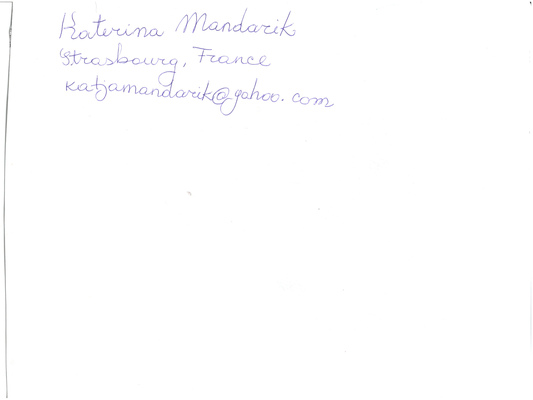 Katerina Mandarik
Strasbourg, France
katjamandarik@yahoo.com